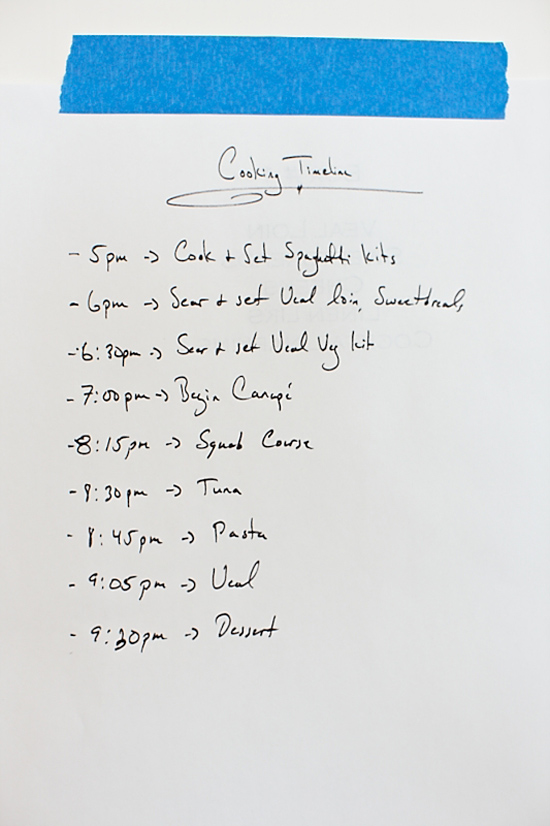 Cooking Timeline
- 5pm -> Cook + Set Spaghetti kits
- 6pm -> Sear + set Veal loin, Sweetbreads
- 6:30pm -> Sear + set Veal Veg kit
- 7:00pm -> Begin Canapé
- 8:15pm -> Squab Course
- 8:30pm -> Tuna
- 8:45pm -> Pasta
- 9:05pm -> Veal
- 9:30pm -> Dessert